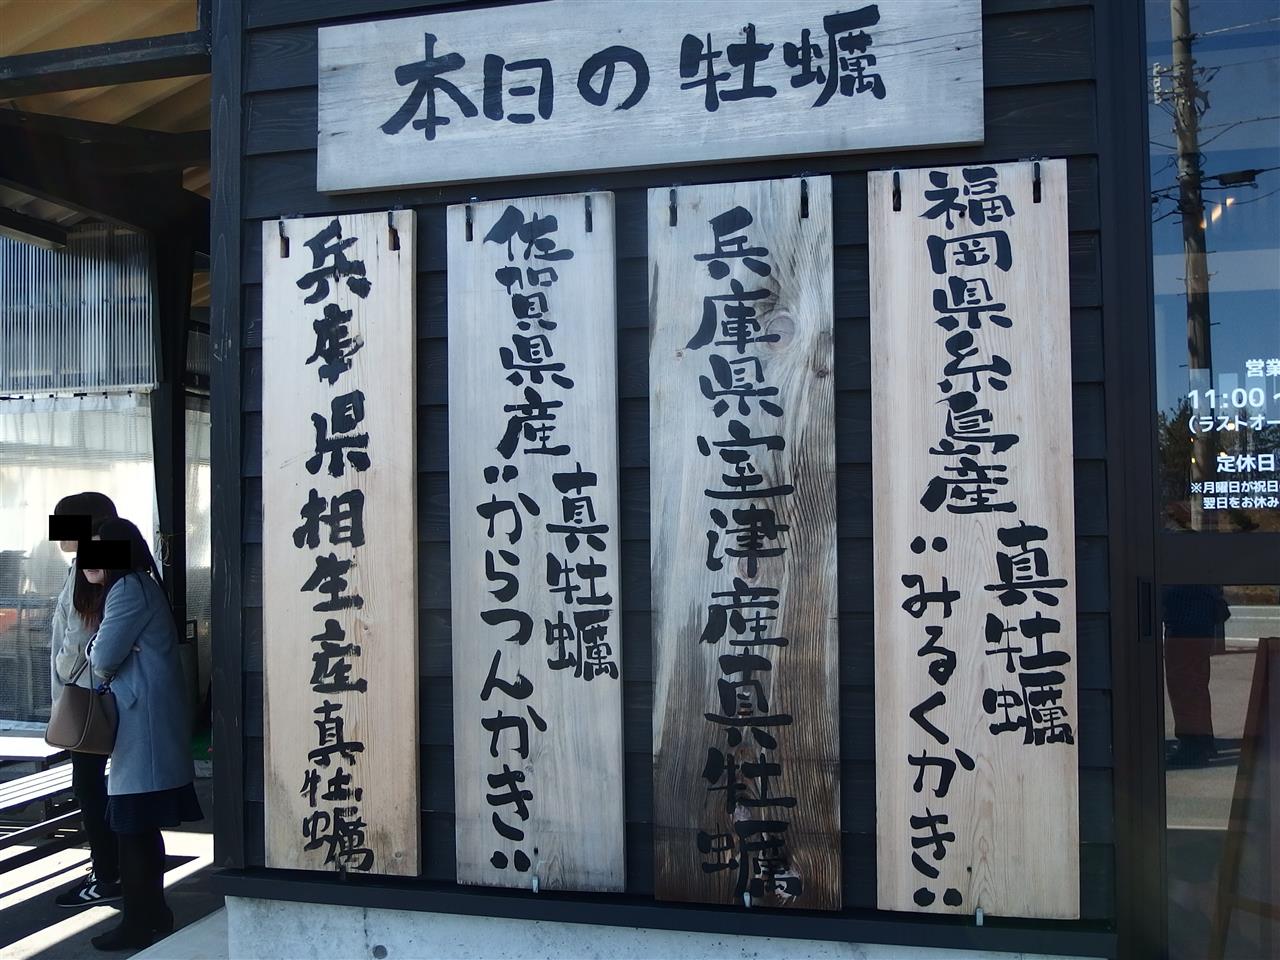 本日の牡蠣
福岡県糸島産
真牡蠣
"みるくかき"
兵庫県室津産真牡蠣
佐賀県産
真牡蠣
"からつんかき"
兵庫県相生産真牡蠣
営業
11:00～
（ラストオー
定休日
※月曜日が祝日
翌日をお休み